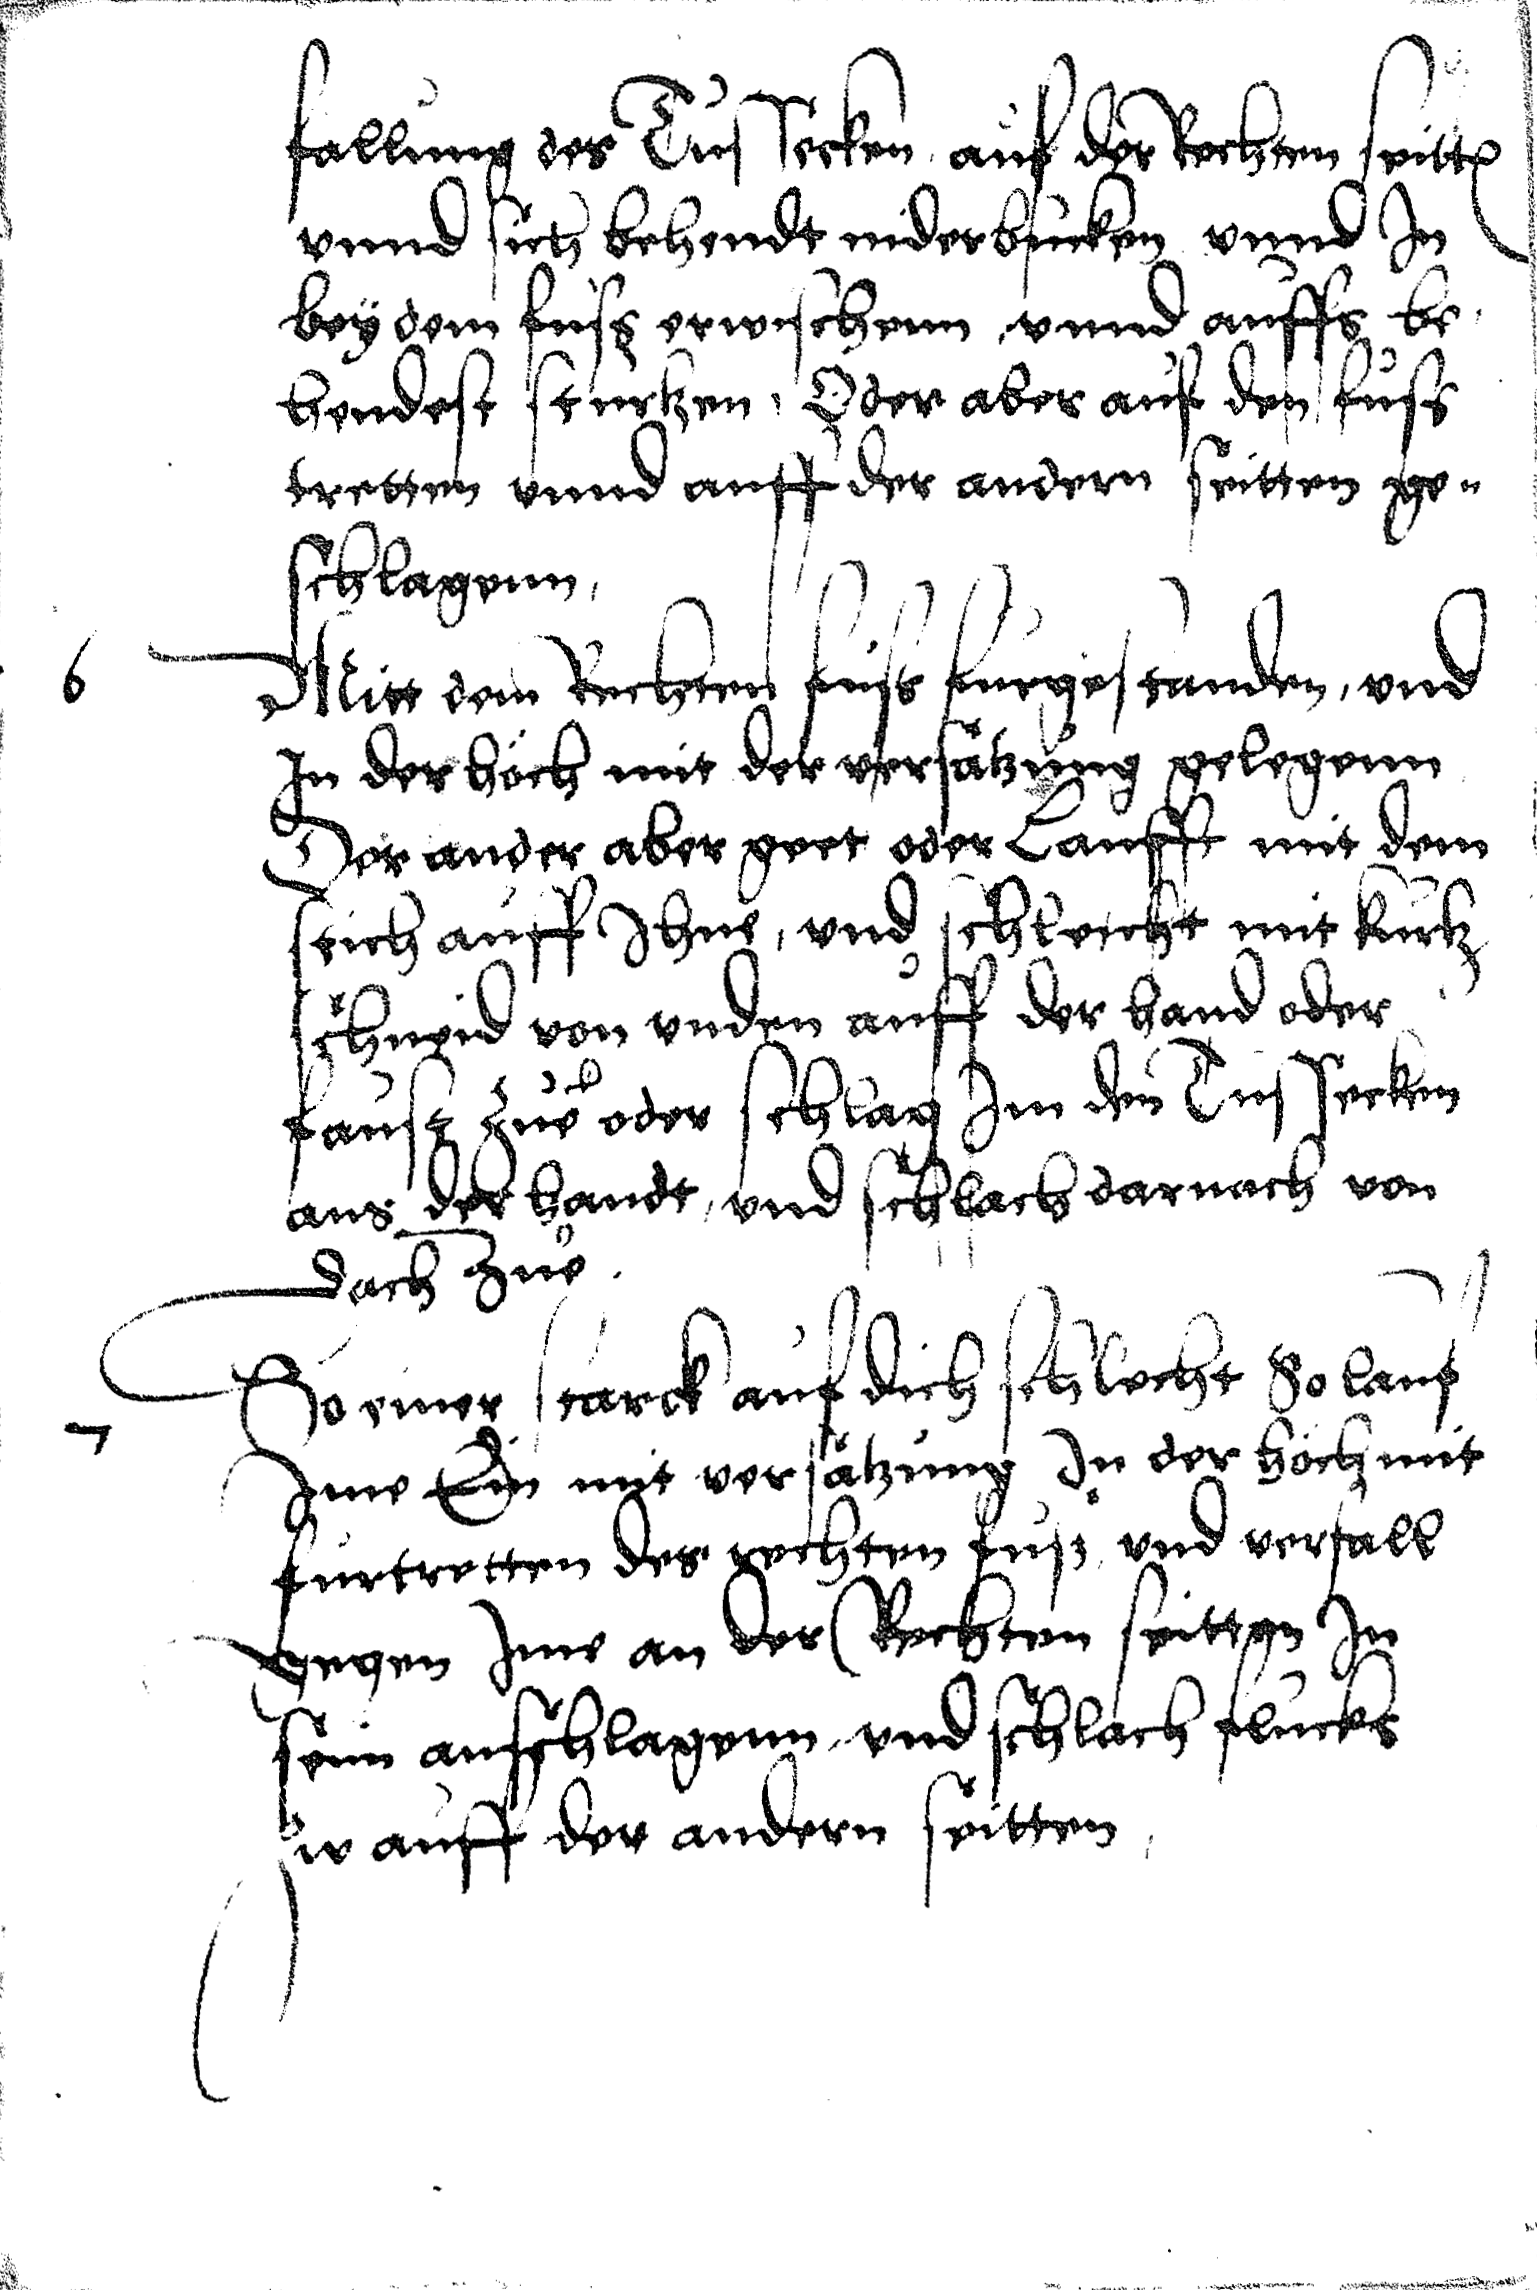 fallung des Dussecken auf der Rechten seitten
vnnd sich behendt niderbucken vnnd In
bey dem fuss erwischenn, vnnd auffs be,
hendest sturtzen, Oder aber auf den fuss
tretten vnnd auff der andern seitten ge„
schlagenn,
6 Mitt dem Rechten fuss furgestanden, vnd
In der höch mit der versatzung gelegenn
Der ander aber geet oder Laufft mit dem
stich auff Ihne, vnd schlecht mit kurtz
schneid von vnden auff der hand oder
faust zue oder schlag Im den Dussecken
aus der handt, vnd schlach darnach von
dach zue.
7 So einer starck auf dich schlecht So lauf
Ime Ein mit versatzung In der höch mit
furtretten des rechten fuss, vnd verfall
gegen Ime an der Rechten seitten In
sein aufschlagenn, vnd schlach flucks
auff der andern seitten,